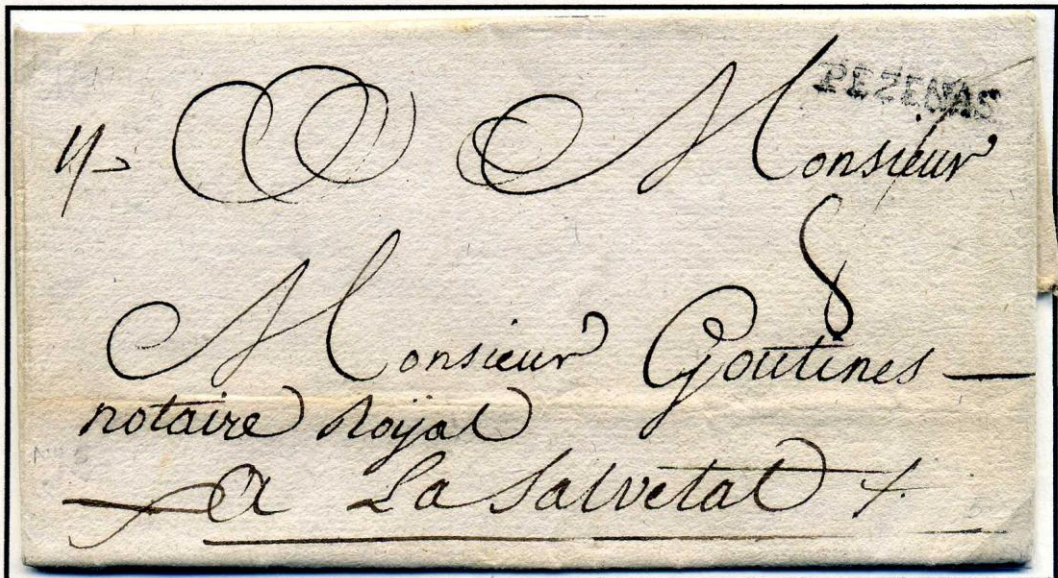 PEZENAS
Monsieur
8
Monsieur Goutines
notaire Royal
a La Salvetat